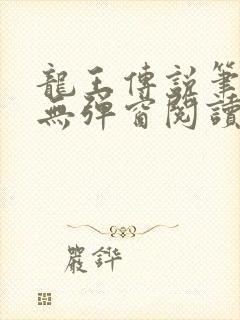 龍王傳説筆
無彈窗閱讀
嚴鏵